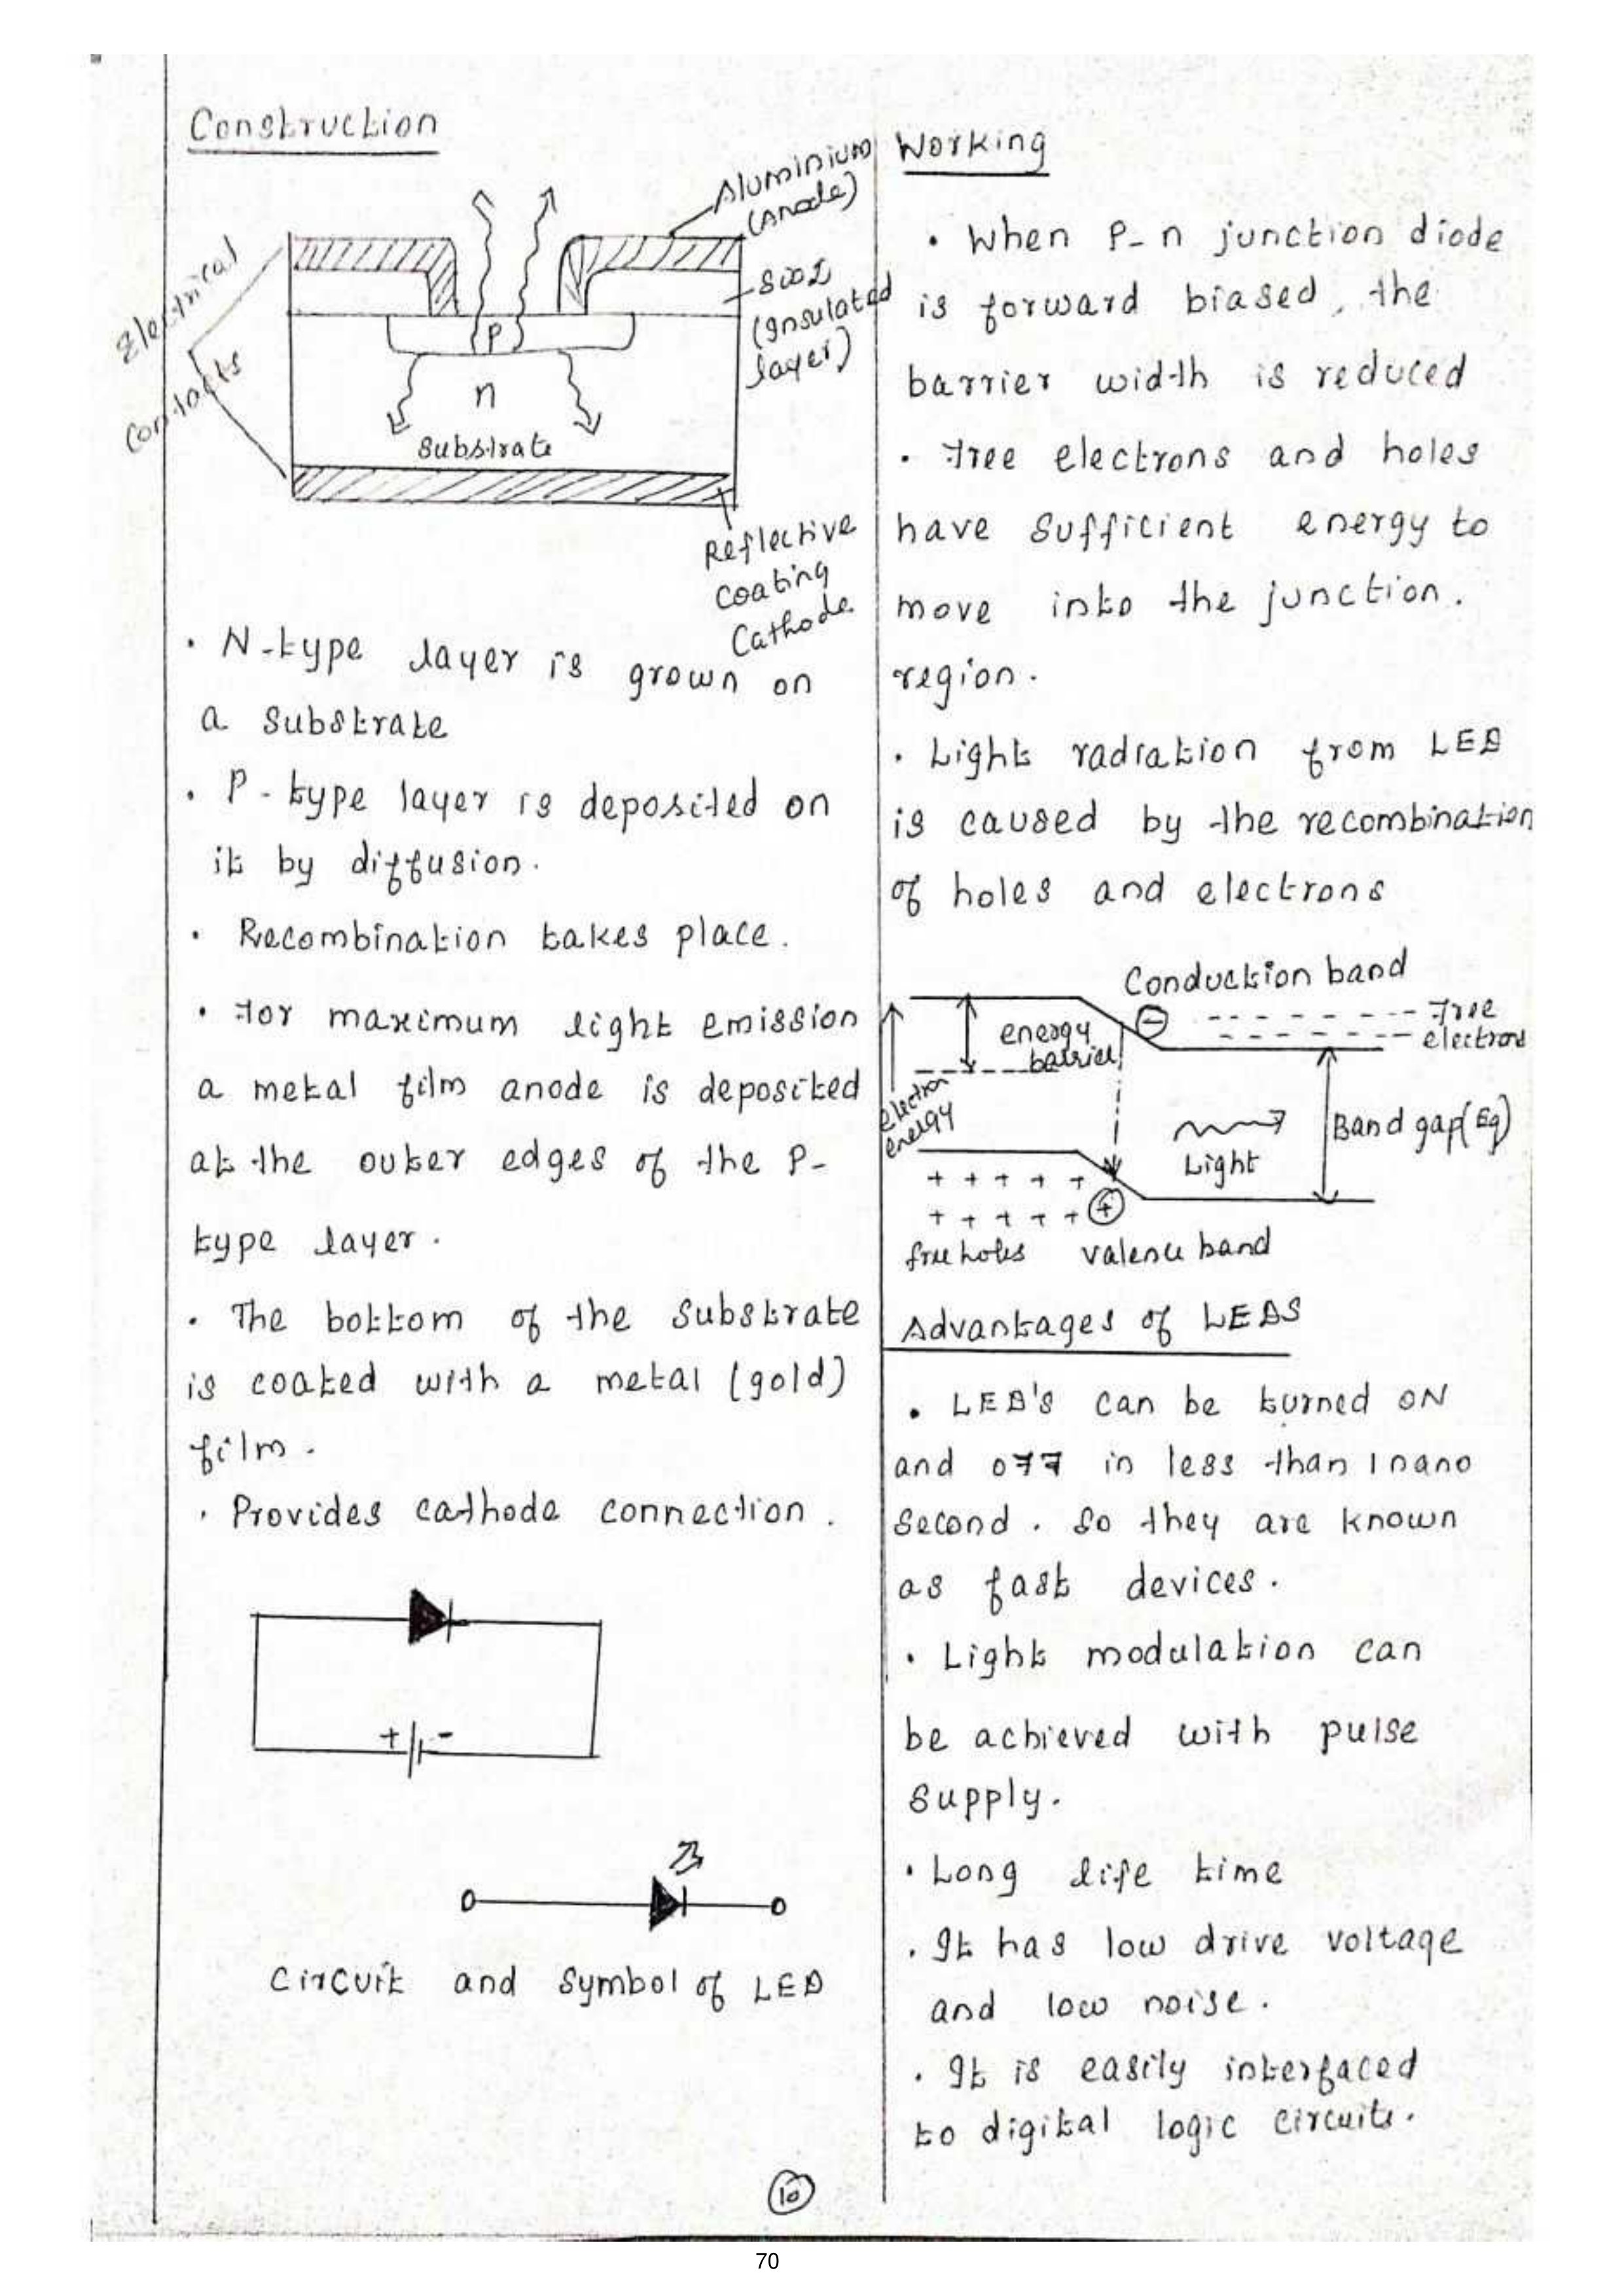 Construction
Aluminium
(Anode)
SiO2
(Insulated
layer)
Electrical
contacts
P
n
Substrate
Reflective
coating
Cathode
· N-type layer is grown on
a substrate
· P-type layer is deposited on
it by diffusion.
· Recombination takes place.
· For maximum light emission
a metal film anode is deposited
at the outer edges of the P-
type layer.
· The bottom of the substrate
is coated with a metal (gold)
film.
· Provides cathode connection.
+ -
Circuit and symbol of LED
Working
· When P-n junction diode
is forward biased, the
barrier width is reduced
· Free electrons and holes
have sufficient energy to
move into the junction.
region.
· Light radiation from LED
is caused by the recombination
of holes and electrons
Conduction band
energy
barrier
-
Free
electrons
electron
energy
Light
Band gap (Eg)
+ + + + +
+ + + + + +
free holes valence band
Advantages of LEDS
· LED's can be turned ON
and OFF in less than 1 nano
second. So they are known
as fast devices.
· Light modulation can
be achieved with pulse
supply.
· Long life time
· It has low drive voltage
and low noise.
· It is easily interfaced
to digital logic circuits.
10
70